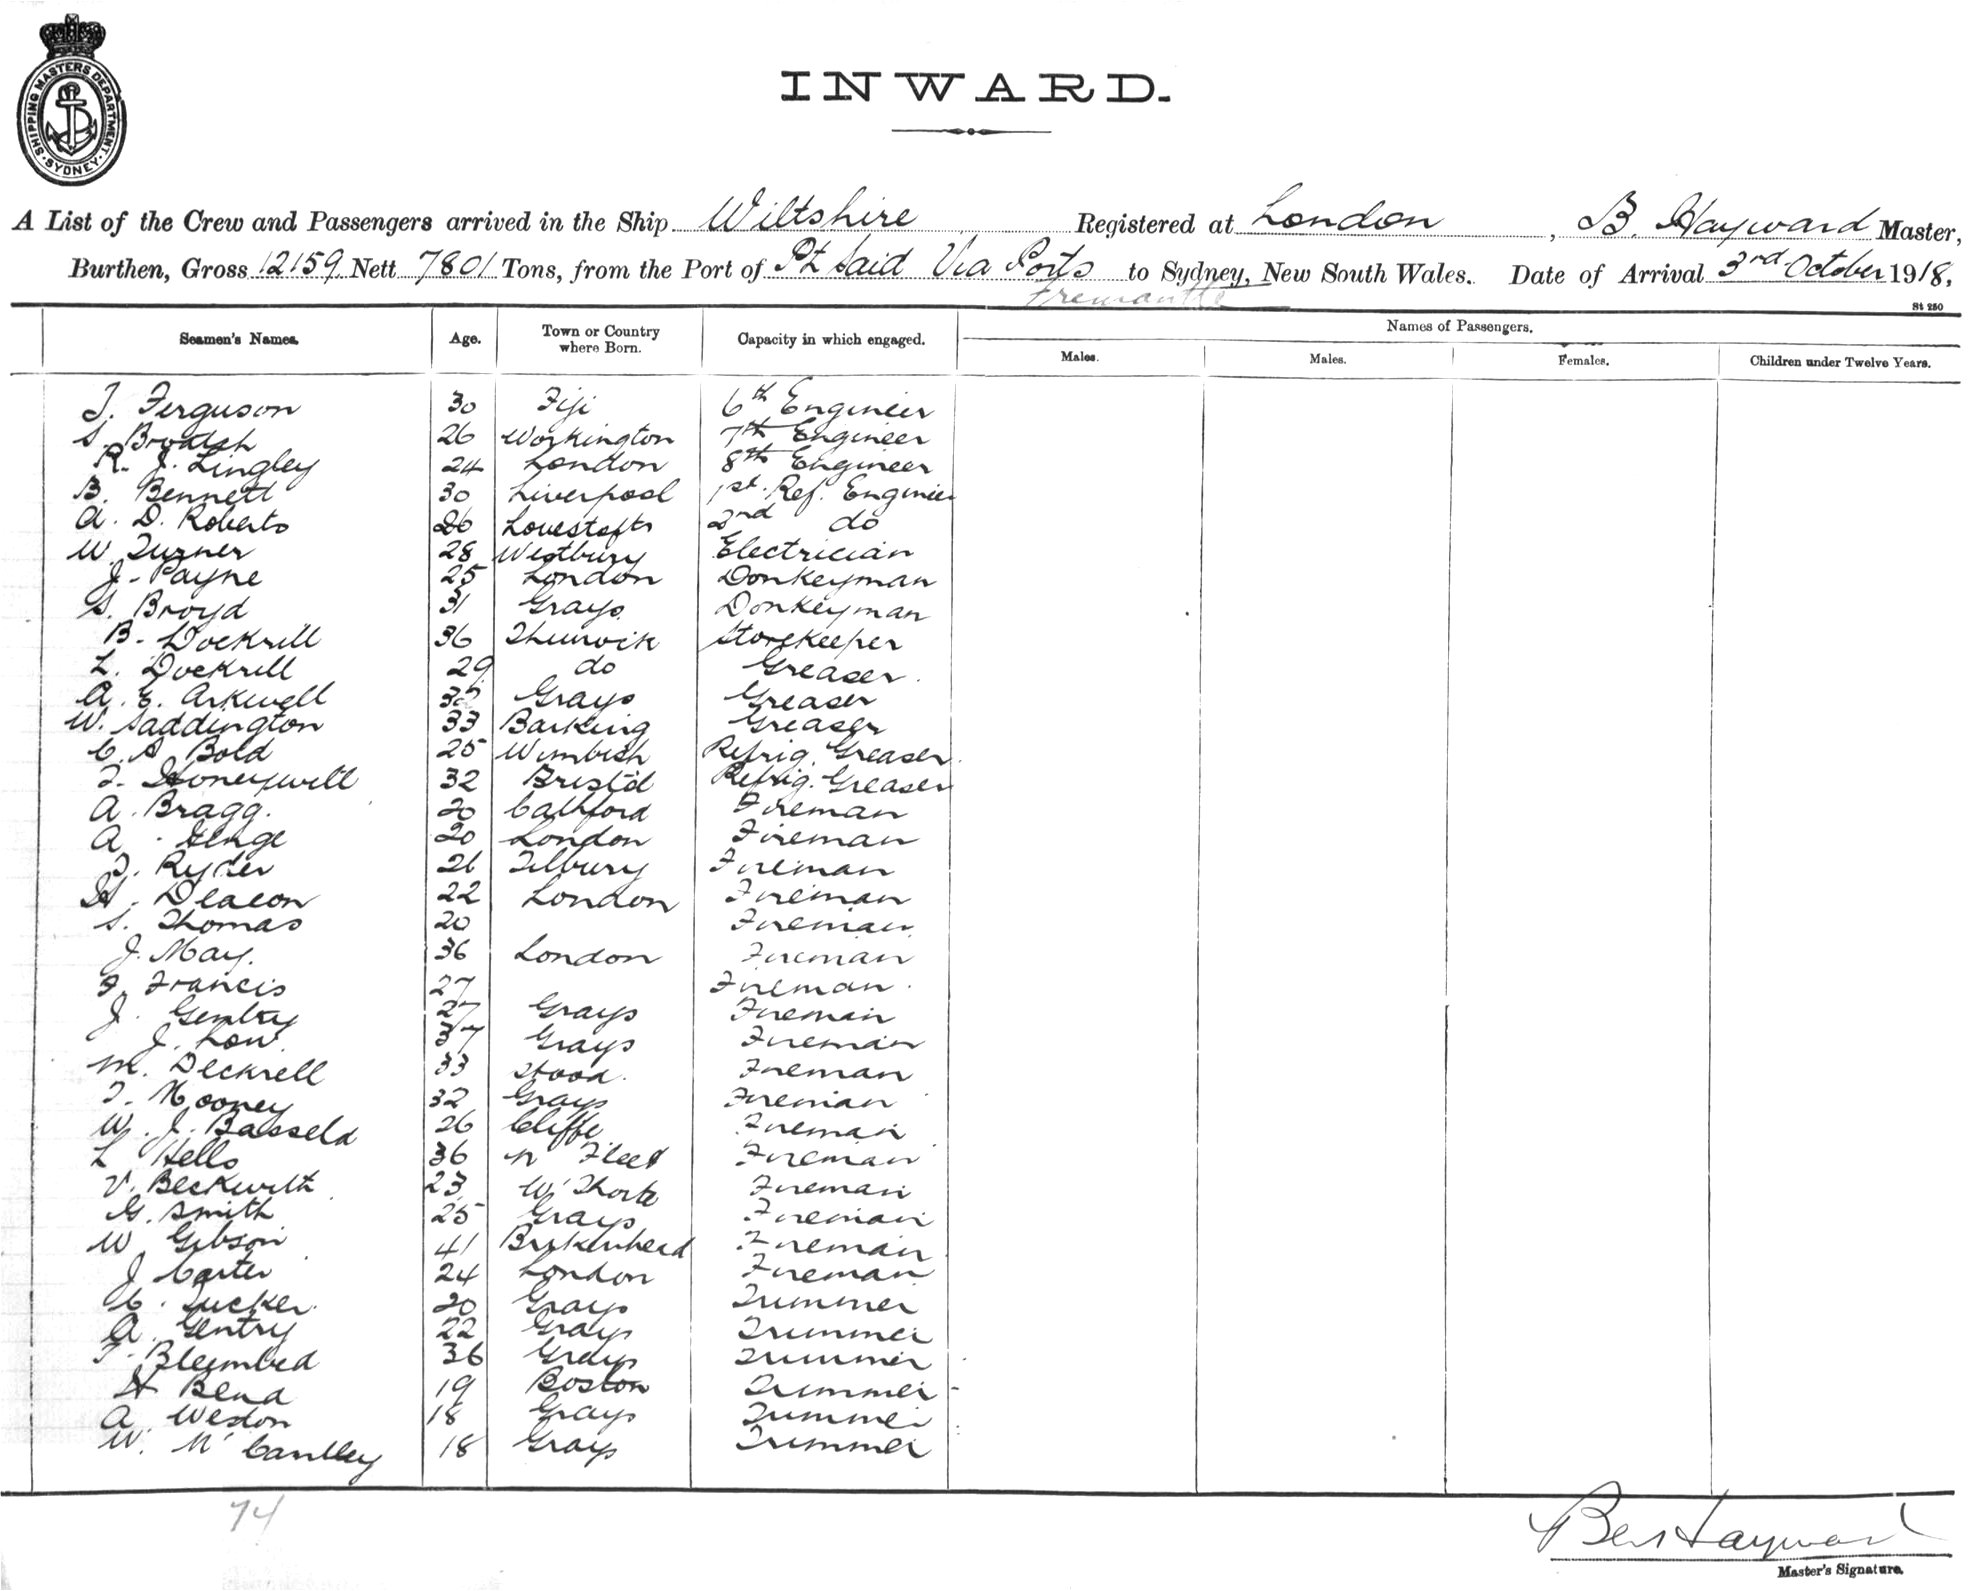 SHIPPING MASTERS DEPARTMENT
· SYDNEY ·
INWARD.
A List of the Crew and Passengers arrived in the Ship Wiltshire Registered at London, B. Hayward Master,
Burthen, Gross 12159 Nett 7801 Tons, from the Port of Pt Said Via Ports to Sydney, New South Wales. Date of Arrival 3rd October 1918,
Fremantle
St 250
Seamen's Names. Age. Town or Country where Born. Capacity in which engaged. Names of Passengers.
Males. Males. Females. Children under Twelve Years.
J. Ferguson 30 Fiji 6th Engineer
S. 26 Workington 7th Engineer
R. J. Lingley 24 London 8th Engineer
B. Bennett 30 Liverpool 1st Ref. Engineer
A. D. Roberts 26 Lowestofts 2nd do
W. Turner 28 Westbury Electrician
J. Payne 25 London Donkeyman
S. Broyd 31 Grays Donkeyman
B. Dockrill 36 Storekeeper
L. Dockrill 29 do Greaser
A. E. Arkwell Grays Greaser
W. Saddington 33 Barking Greaser
C. A. Bold 25 Wimbish Refrig. Greaser
F. Honeywill 32 Bristol Refrig. Greaser
A. Bragg. 20 Catford Fireman
A. Genge 20 London Fireman
T. Ryder 26 Tilbury Fireman
H. Deacon 22 London Fireman
S. Thomas 20 Fireman
J. May. 36 London Fireman
F. Francis 27 Fireman
J. Gentry 27 Grays Fireman
J. Low 37 Grays Fireman
M. Deckrell 33 Stood. Fireman
T. Mooney 32 Grays Fireman
W. J. Basseld 26 Cliffe Fireman
L Hells 36 N Fleet Fireman
V. Beckwith 23 Fireman
G. Smith 25 Grays Fireman
W Gibson 41 Birkenhead Fireman
J Carter 24 London Fireman
C. Tucker 20 Grays Trimmer
A. Gentry 22 Grays Trimmer
F. 36 Grays Trimmer
H Bend 19 Boston Trimmer
A Weston 18 Grays Trimmer
W. 18 Grays Trimmer
74
Ben Hayward
Master's Signature.